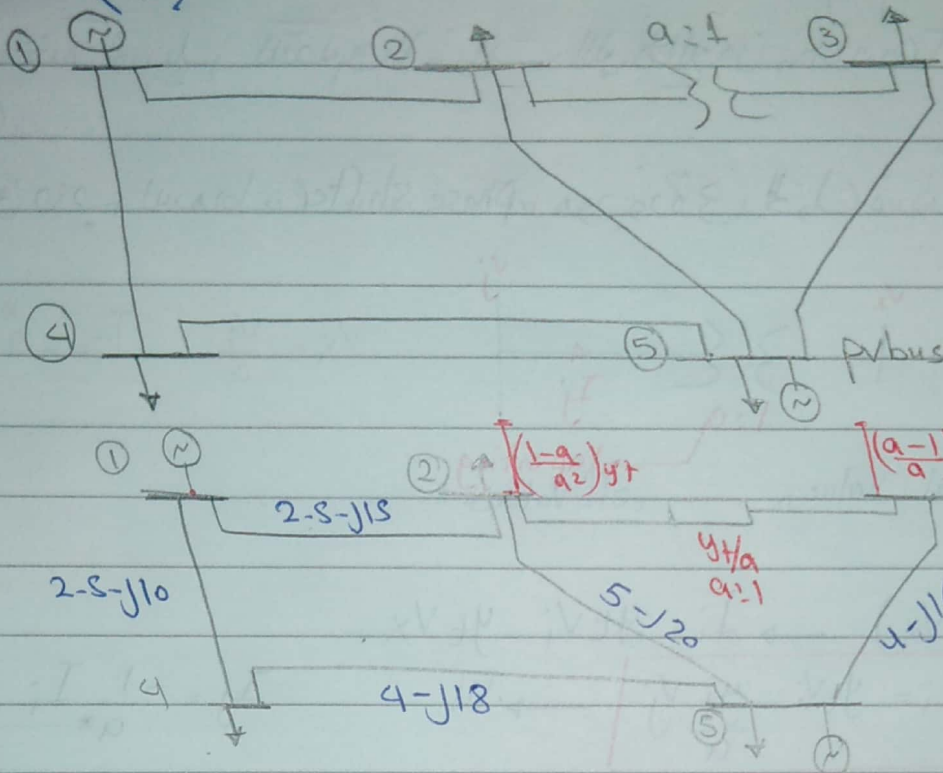 ① ~ ② a=1 ③
④ ⑤ pvbus
~
① ~ ② (1-a/a²)yt (a-1/a
2-5-j15
yt/a
a=1
2-5-j10 5-j20 4-j1
4 4-j18
⑤ ~